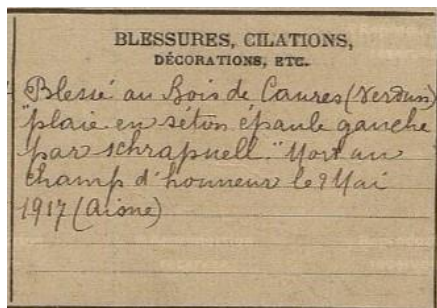 BLESSURES, CILATIONS,
DÉCORATIONS, ETC.
Blessé au Bois de Caures (Verdun)
"plaie en séton épaule gauche
par schrapnell." Mort au
champ d'honneur le 9 Mai
1917 (Aisne)